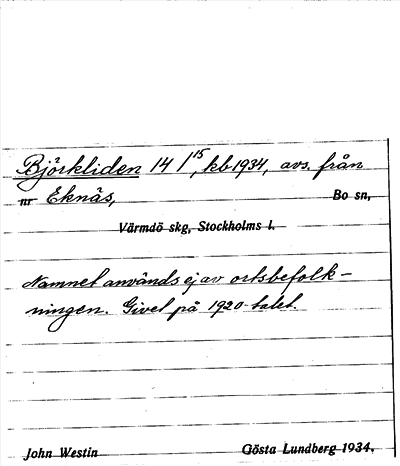 Björkliden 14/15, kb 1934, avs. från
nr Eknäs, Bo sn,
Värmdö skg, Stockholms l.
Namnet används ej av ortsbefolk-
ningen. Givet på 1920-talet.
John Westin Gösta Lundberg 1934.